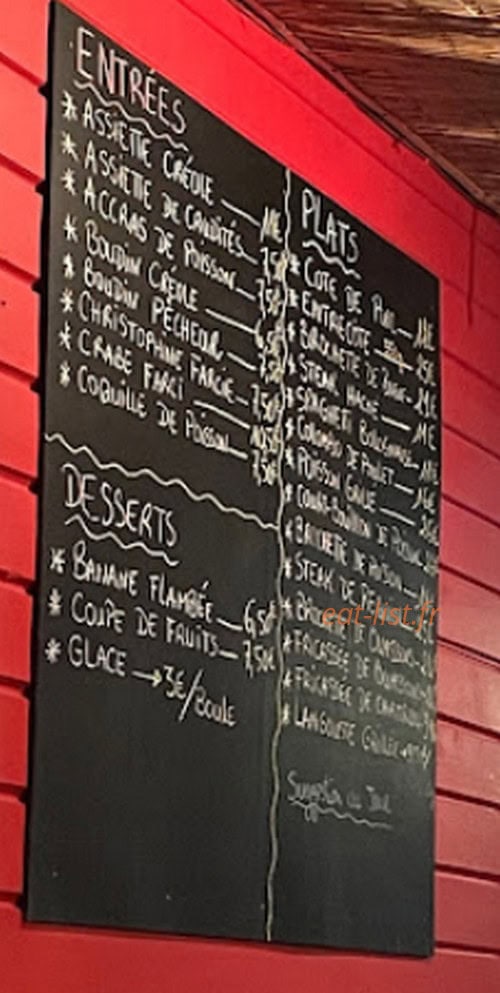 ENTRÉES
* ASSIETTE CRÉOLE — 11€
* ASSIETTE DE CRUDITÉS — 7,50€
* ACCRAS DE POISSON — 7,50€
* BOUDIN CRÉOLE — 6,50€
* BOUDIN PÊCHEUR — 7,50€
* CHRISTOPHINE FARCIE — 7,50€
* CRABE FARCI — 10,50€
* COQUILLE DE POISSON — 7,50€
DESSERTS
* BANANE FLAMBÉE — 6,50€
* COUPE DE FRUITS — 7,50€
* GLACE → 3€/BOULE
PLATS
* COTE DE PORC —
* ENTRECOTE
* BROCHETTE DE
* STEAK HACHÉ —
* SPAGHETI BOLOGNAISE —
* COLOMBO DE POULET —
* POISSON GRILLÉ —
* COURT-BOUILLON DE POISSON
* BROCHETTE DE POISSON —
* STEAK DE
* DE
* FRICASSÉE DE
* FRICASSÉE DE
* LANGOUSTE GRILLÉE
Suggestion du Jour
eat-list.fr